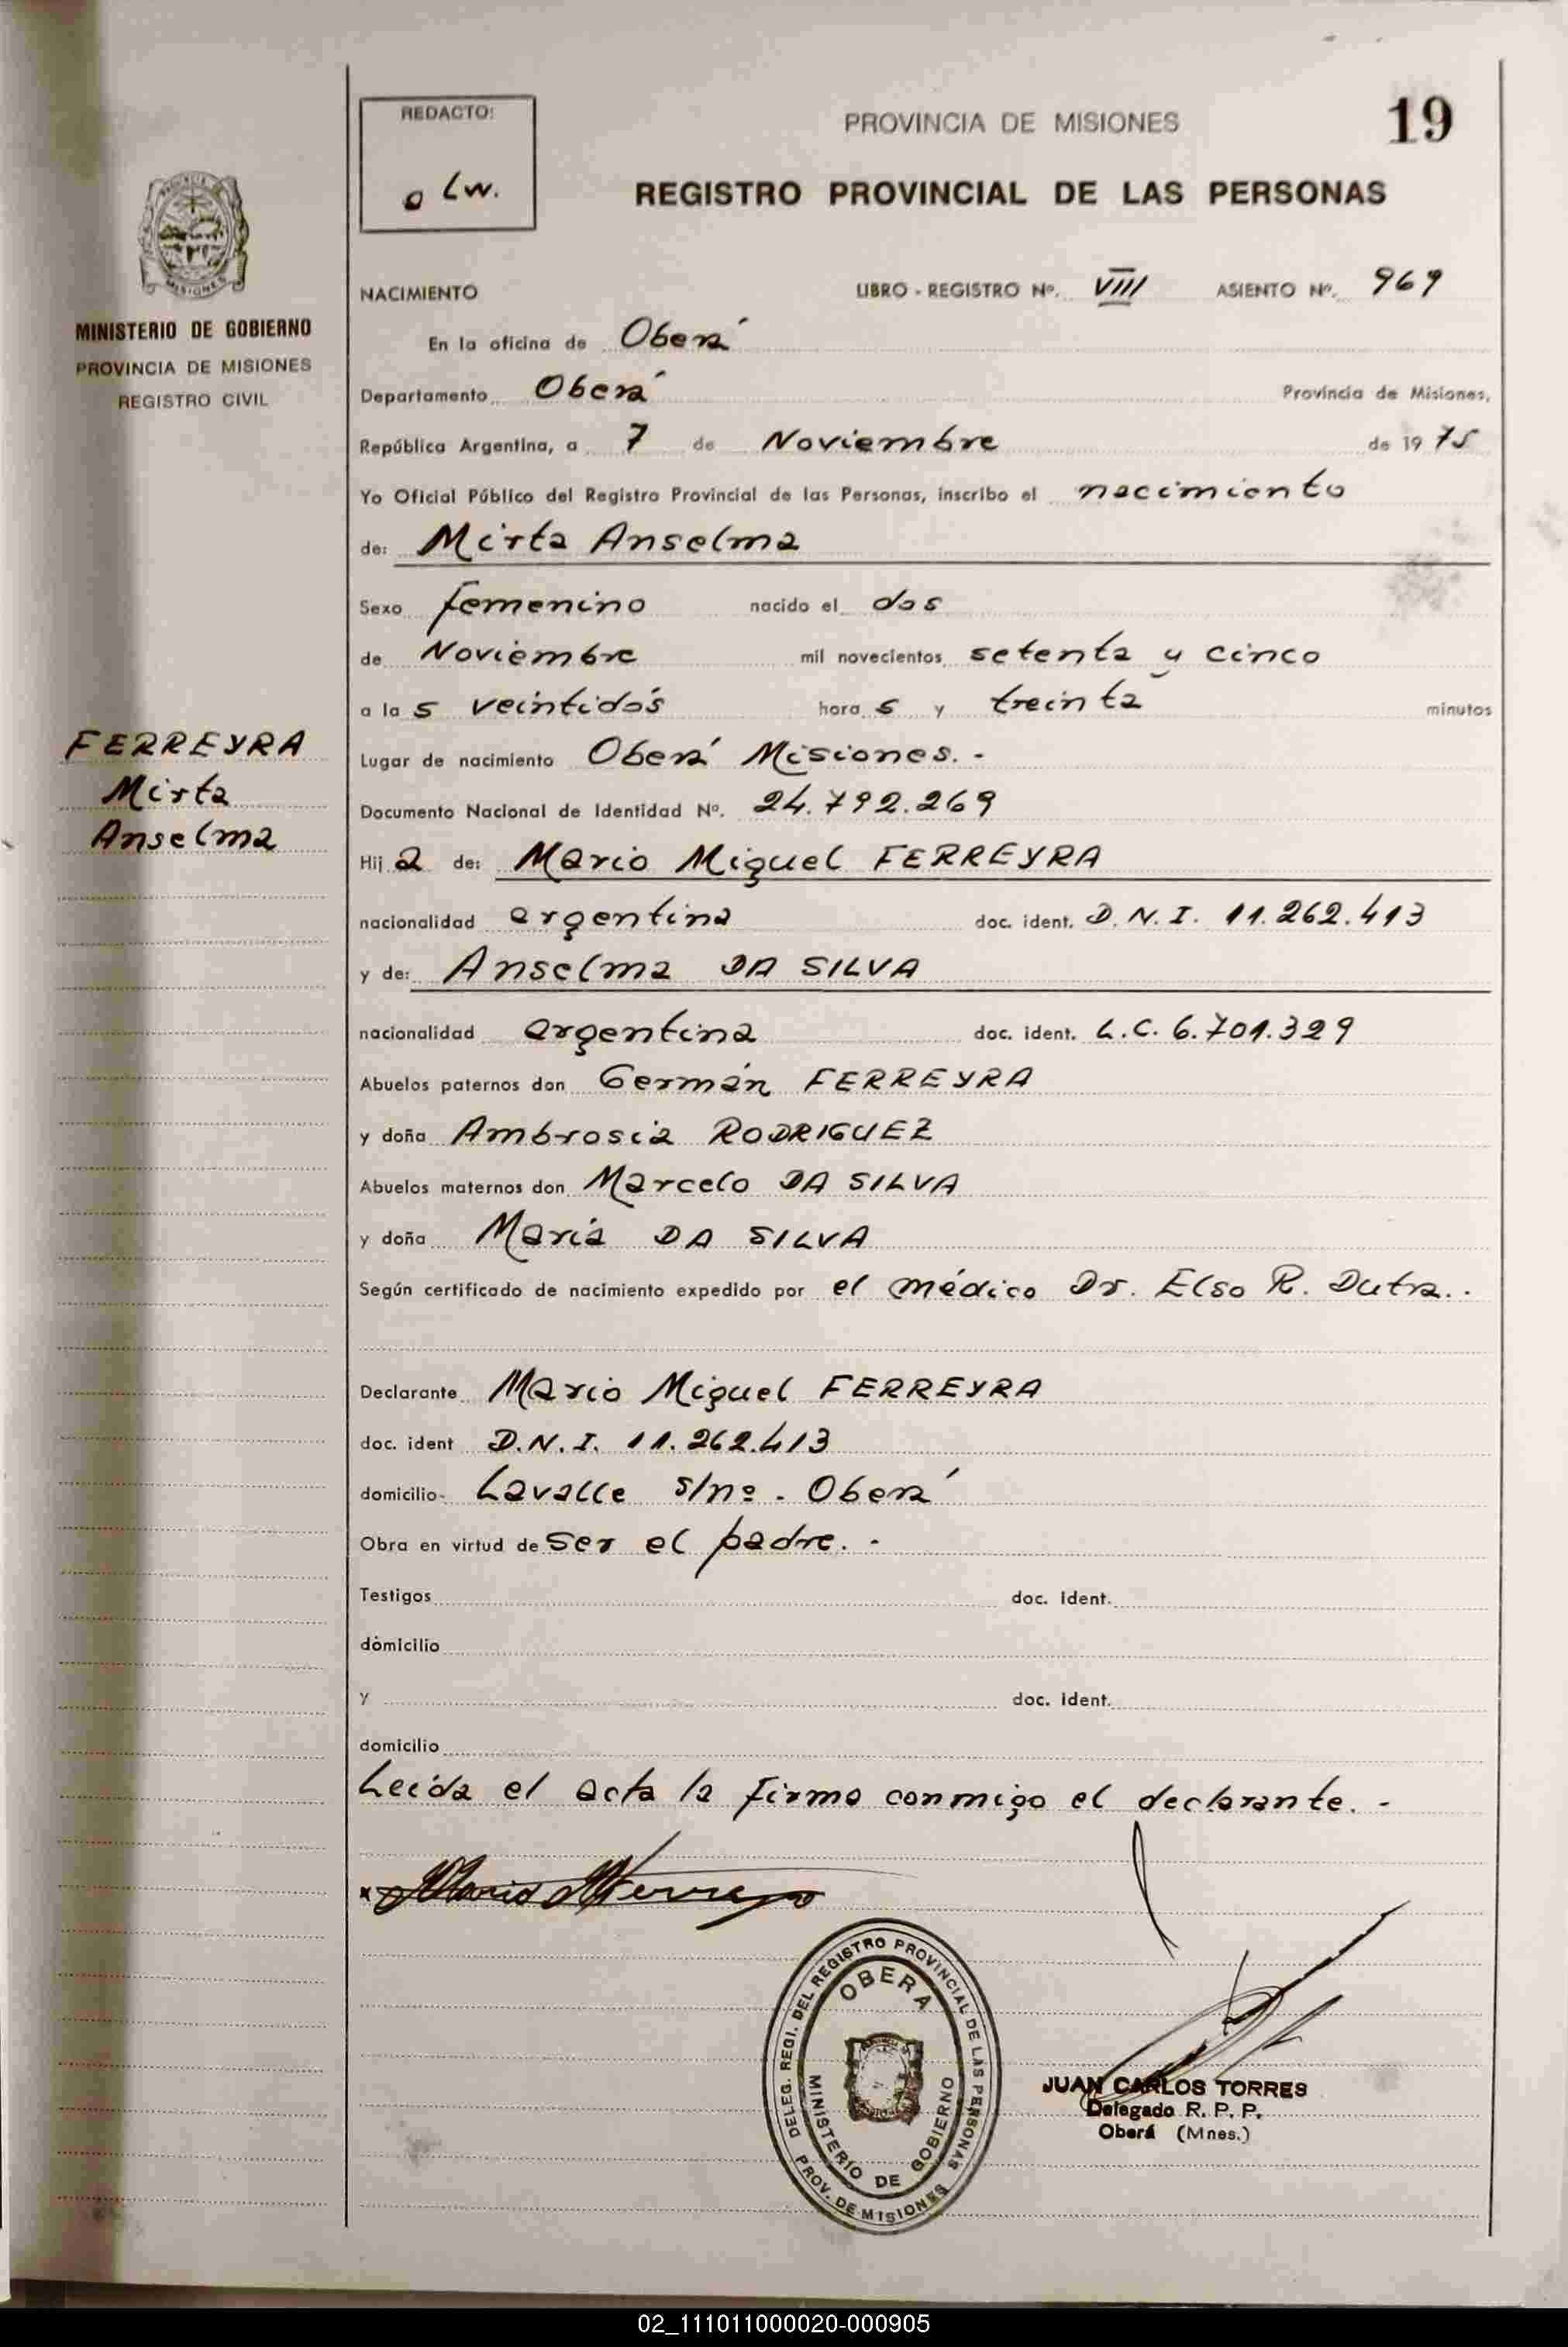 REDACTO:
Lw.
PROVINCIA DE MISIONES
19
REGISTRO PROVINCIAL DE LAS PERSONAS
MINISTERIO DE GOBIERNO
PROVINCIA DE MISIONES
REGISTRO CIVIL
NACIMIENTO LIBRO - REGISTRO Nº. VIII ASIENTO Nº. 969
En la oficina de Oberá
Departamento Oberá Provincia de Misiones,
República Argentina, a 7 de Noviembre de 1975
Yo Oficial Público del Registro Provincial de las Personas, inscribo el nacimiento
de: Mirta Anselma
Sexo femenino nacido el dos
de Noviembre mil novecientos setenta y cinco
a las veintidós horas y treinta minutos
FERREYRA
Mirta
Anselma
Lugar de nacimiento Oberá Misiones.-
Documento Nacional de Identidad Nº. 24.792.269
Hija de: Mario Miguel FERREYRA
nacionalidad argentina doc. ident. D.N.I. 11.262.413
y de: Anselma DA SILVA
nacionalidad argentina doc. ident. L.C. 6.701.329
Abuelos paternos don Germán FERREYRA
y doña Ambrosia RODRIGUEZ
Abuelos maternos don Marcelo DA SILVA
y doña María DA SILVA
Según certificado de nacimiento expedido por el médico Dr. Elso R. Dutra..
Declarante Mario Miguel FERREYRA
doc. ident D.N.I. 11.262.413
domicilio Lavalle s/nº. Oberá
Obra en virtud de ser el padre.-
Testigos doc. Ident.
domicilio
y doc. ident.
domicilio
Leída el acta la firma conmigo el declarante.-
x Mario M Ferreyra
DELEG. REGI. DEL REGISTRO PROVINCIAL DE LAS PERSONAS
OBERA
MINISTERIO DE GOBIERNO
PROV. DE MISIONES
JUAN CARLOS TORRES
Delegado R. P. P.
Oberá (Mnes.)
02_111011000020-000905